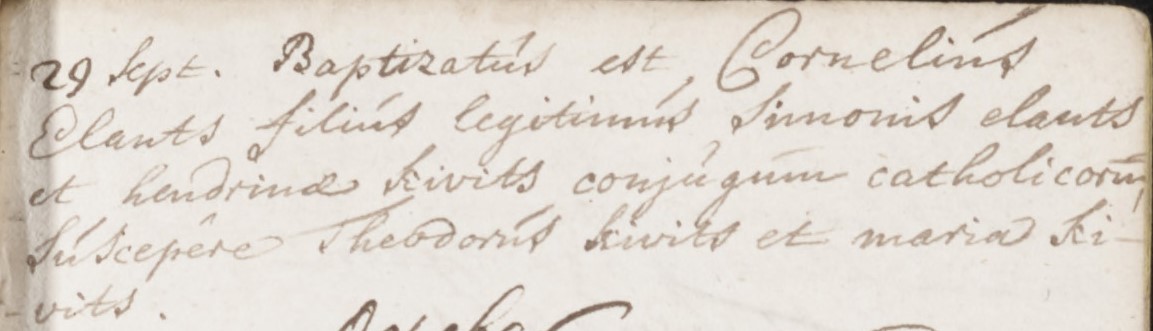 29 Sept. Baptizatús est Corneliús
Elants filiús legitimús Simonis elants
et hendrinæ kivits conjúgum catholicorum,
súscepêre Theodorús kivits et maria ki-
-vits.